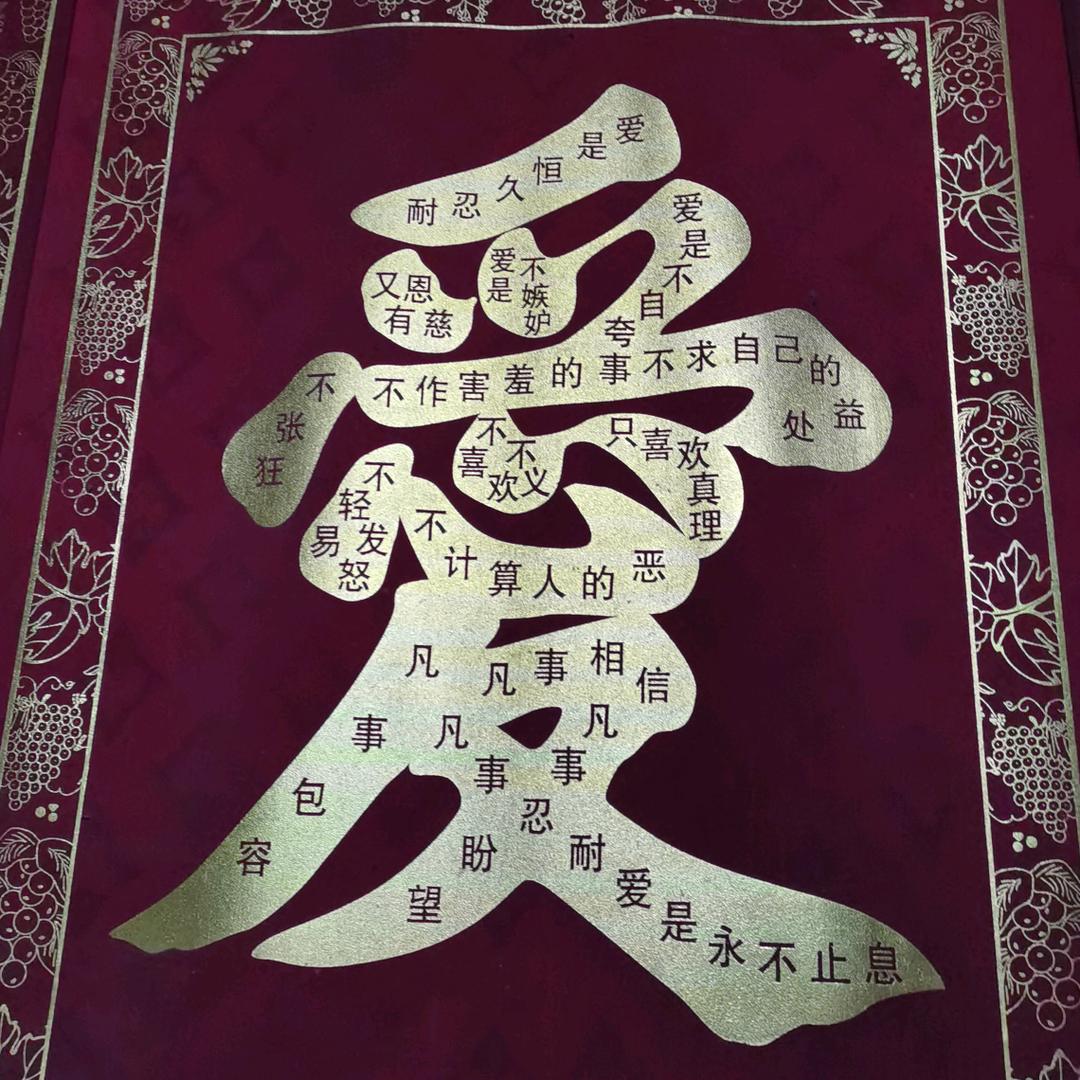 愛
爱是恒久忍耐
又恩
有慈
爱是不嫉妒
爱是不自夸
不张狂
不作害羞的事
不求自己的益处
不轻易发怒
不计算人的恶
不喜欢不义
只喜欢真理
凡事包容
凡事相信
凡事盼望
凡事忍耐
爱是永不止息